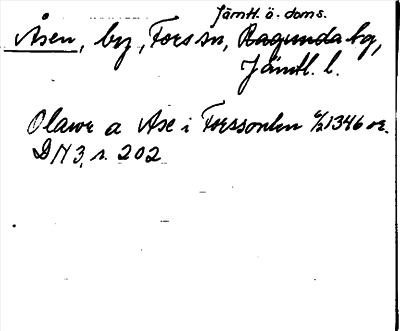 Jämtl. ö. doms.
Åsen, by, Fors sn, Ragunda tg,
Jämtl. l.
Olawe a Ase i Forssonlen 6/2 1346 or.
DN 3, s. 202